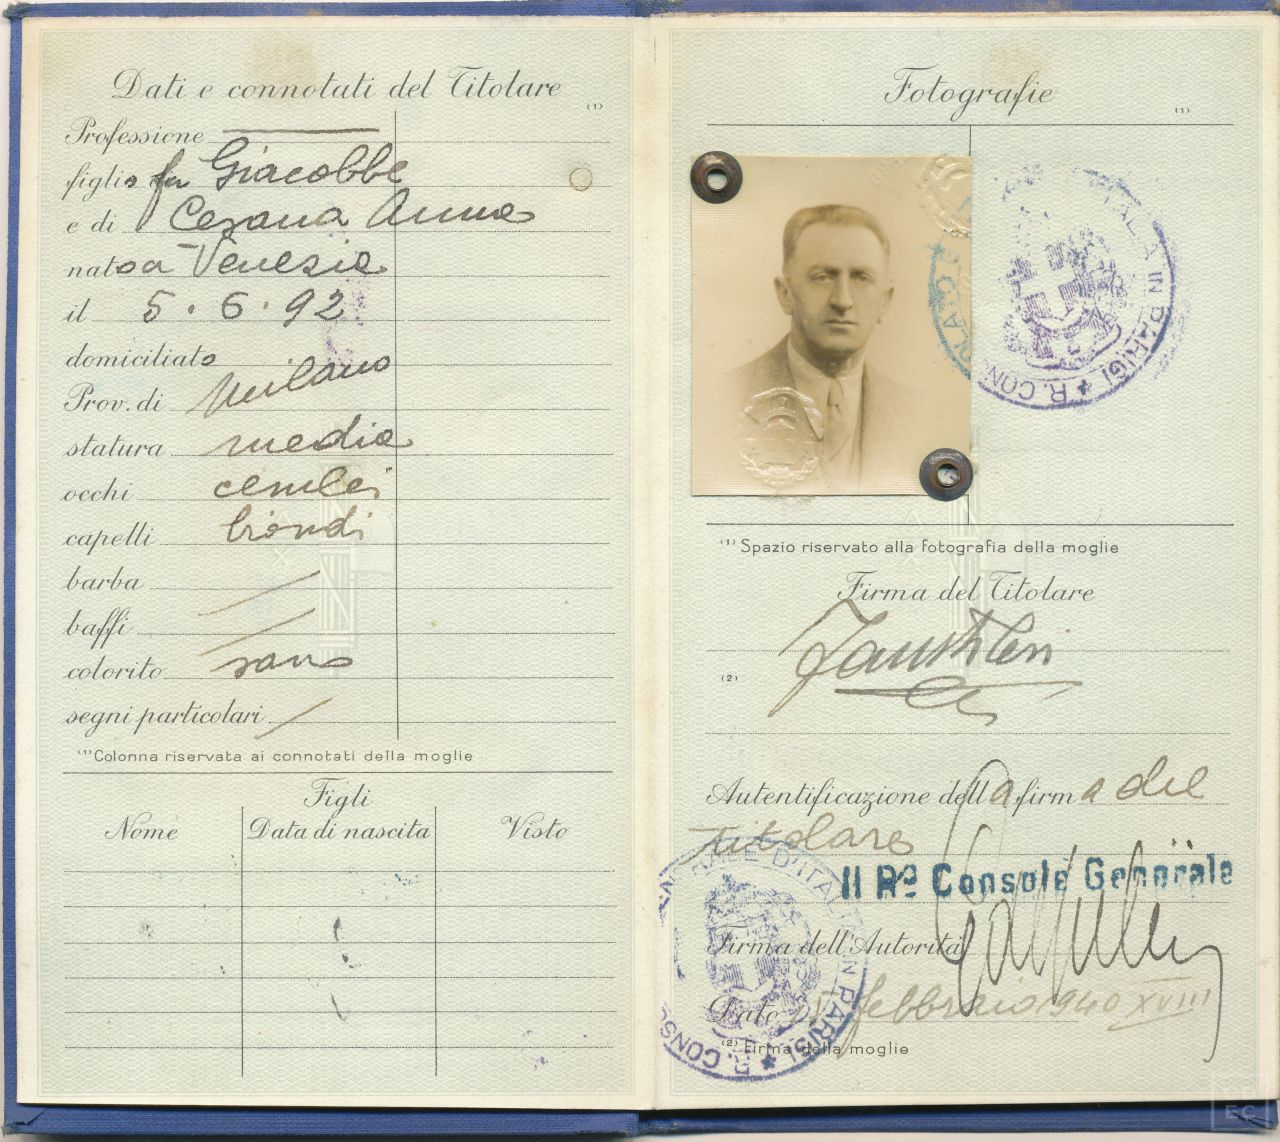 Dati e connotati del Titolare
(1)
Professione
figlio fu Giacobbe
e di Cesana Anna
nato a Venezia
il 5.6.92
domiciliato
Prov. di Milano
statura media
occhi cerulei
capelli biondi
barba
baffi
colorito sano
segni particolari
(1) Colonna riservata ai connotati della moglie
Figli
Nome Data di nascita Visto
Fotografie
(1)
D'ITALIA IN PARIGI ★ R. CONSOLA
(1) Spazio riservato alla fotografia della moglie
Firma del Titolare
(2)
Autentificazione della firma del
Titolare
Il Rº Console Generale
Firma dell'Autorità
Data febbraio 1940 XVIII
(2) Firma della moglie
R. CONSOLATO GENERALE D'ITALIA IN PARIGI ★
EC